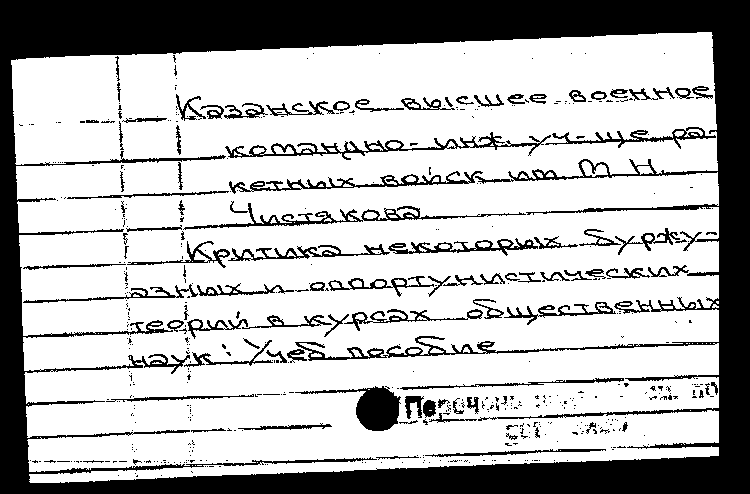 Казанское высшее военное
командно-инж. уч-ще ра-
кетных войск им М Н.
Чистякова
Критика некоторых буржу-
азных и оппортунистических
теорий в курсах общественных
наук: Учеб пособие
Перечень по